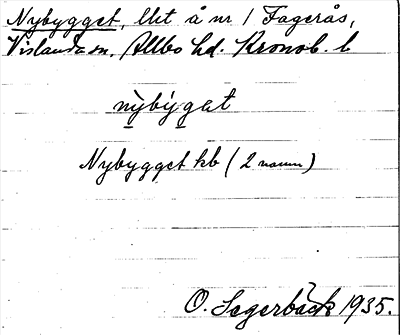 Nybygget, lht å nr 1 Fagerås,
Vislanda sn. Allbo hd. Kronob. l
nybygat
Nybygget kb (2 namn)
O. Segerbäck 1935.